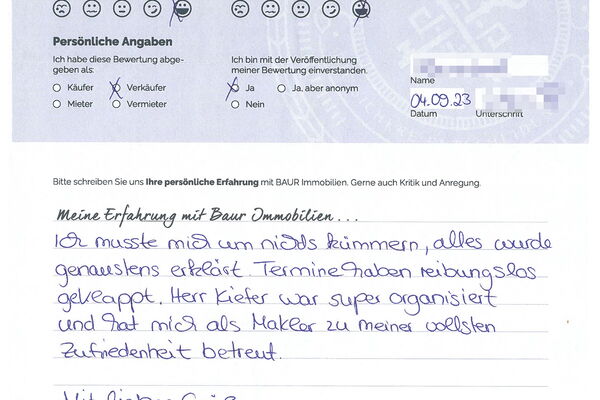 Persönliche Angaben
Ich habe diese Bewertung abge-
geben als:
Käufer
Verkäufer
Mieter
Vermieter
Ich bin mit der Veröffentlichung
meiner Bewertung einverstanden.
Ja
Ja, aber anonym
Nein
Name
04.09.23
Datum
Unterschrift
Bitte schreiben Sie uns Ihre persönliche Erfahrung mit BAUR Immobilien. Gerne auch Kritik und Anregung.
Meine Erfahrung mit Baur Immobilien...
Ich musste mich um nichts kümmern, alles wurde
genaustens erklärt. Termine haben reibungslos
geklappt. Herr Kiefer war super organisiert
und hat mich als Makler zu meiner vollsten
Zufriedenheit betreut.